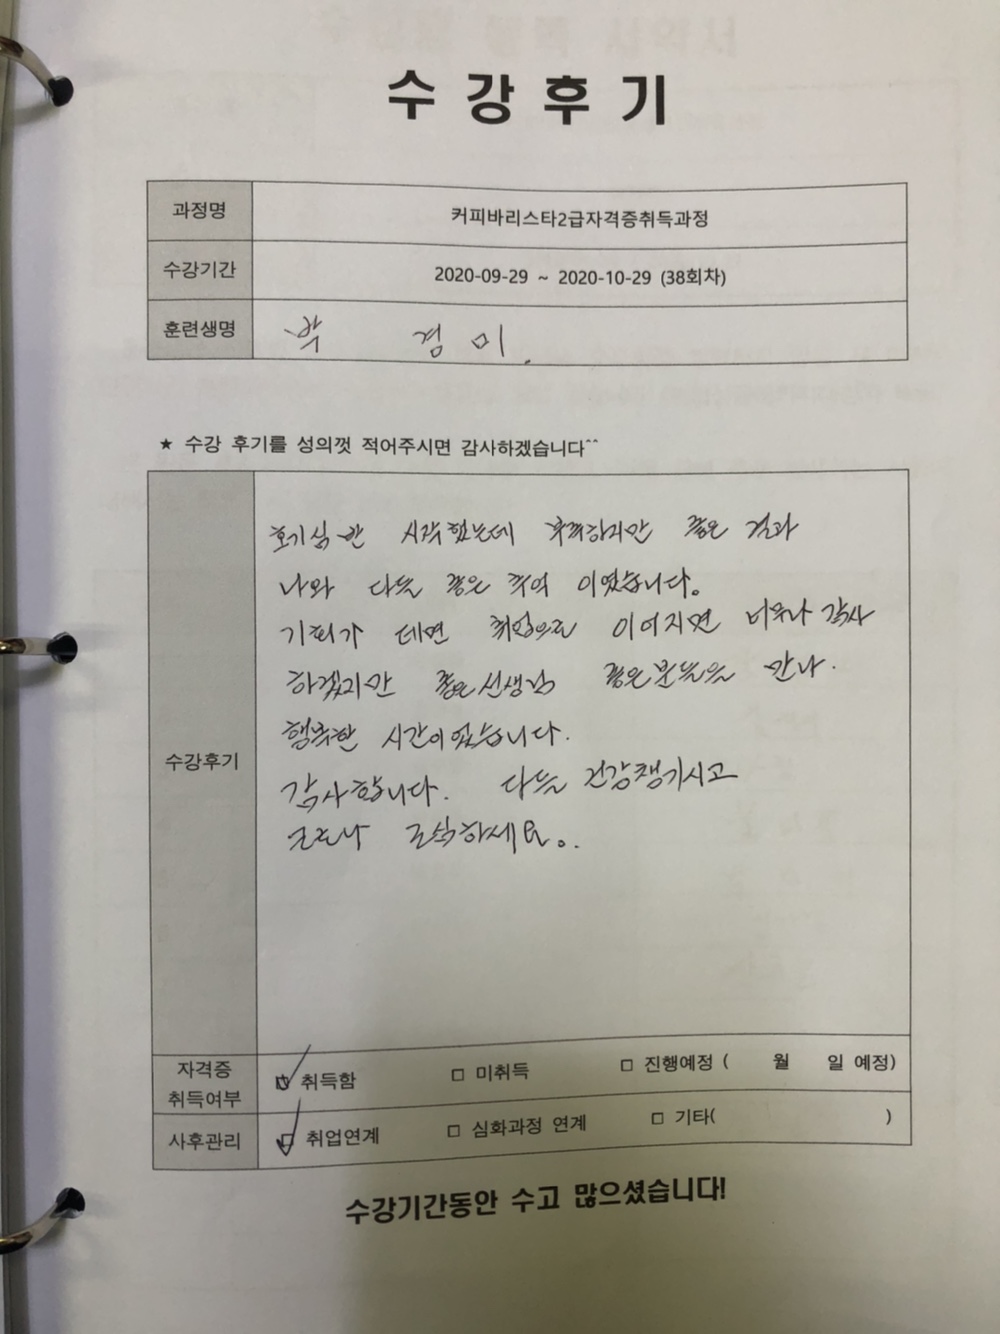 수강후기
과정명 커피바리스타2급자격증취득과정
수강기간 2020-09-29 ~ 2020-10-29 (38회차)
훈련생명 박 경 미.
★ 수강 후기를 성의껏 적어주시면 감사하겠습니다^^
수강후기
호기심 반 시작했는데 부족하지만 좋은 결과
나와 다들 좋은 추억 이였습니다.
기회가 데면 취업으로 이어지면 너무나 감사
하겠지만 좋은선생님 좋은분들을 만나.
행복한 시간이였습니다.
감사합니다. 다들 건강챙기시고
코로나 조심하세요..
자격증 취득여부 취득함 □ 미취득 □ 진행예정 ( 월 일 예정)
사후관리 □ 취업연계 □ 심화과정 연계 □ 기타( )
수강기간동안 수고 많으셨습니다!